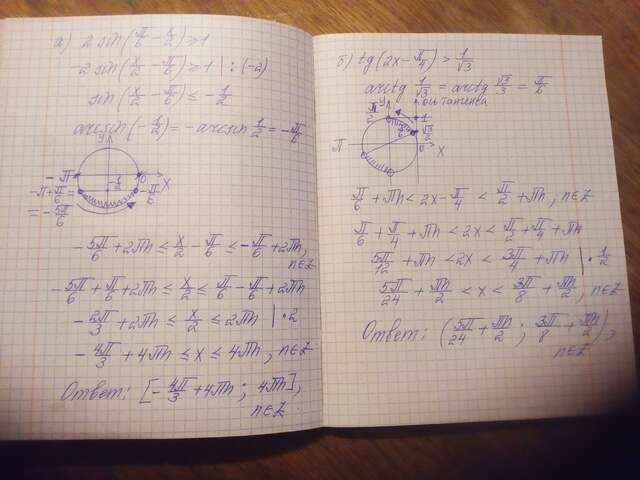 а) 2 sin(π/6 − x/2) ≥ 1
−2 sin(x/2 − π/6) ≥ 1 | : (−2)
sin(x/2 − π/6) ≤ −1/2
arcsin(−1/2) = −arcsin 1/2 = −π/6
y
−π 0 x
−π+π/6 = −1/2 −π/6
= −5π/6
−5π/6 + 2πn ≤ x/2 − π/6 ≤ −π/6 + 2πn,
n∈Z
−5π/6 + π/6 + 2πn ≤ x/2 ≤ π/6 − π/6 + 2πn
−2π/3 + 2πn ≤ x/2 ≤ 2πn | · 2
−4π/3 + 4πn ≤ x ≤ 4πn, n∈Z
Ответ: [−4π/3 + 4πn; 4πn],
n∈Z.
б) tg(2x − π/4) > 1/√3
arctg 1/√3 = arctg √3/3 = π/6
π/2 y ось тангенса
1
π/6 √3/3
π 0 x
π/6 + πn < 2x − π/4 < π/2 + πn, n∈Z
π/6 + π/4 + πn < 2x < π/2 + π/4 + πn
5π/12 + πn < 2x < 3π/4 + πn | · 1/2
5π/24 + πn/2 < x < 3π/8 + πn/2, n∈Z
Ответ: (5π/24 + πn/2; 3π/8 + πn/2),
n∈Z